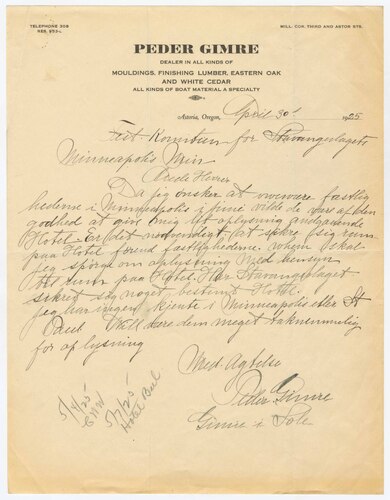 TELEPHONE 308
RES. 953-L
MILL: COR. THIRD AND ASTOR STS.
PEDER GIMRE
DEALER IN ALL KINDS OF
MOULDINGS, FINISHING LUMBER, EASTERN OAK
AND WHITE CEDAR
ALL KINDS OF BOAT MATERIAL A SPECIALTY
Astoria, Oregon, April 30 1925
Fest Komiteen for Stavangerlaget
Minneapolis Minn
Ærede Herrer
Da jeg ønsker at overvære festlig
hederne i Minneapolis i juni vilde de være af den
godhed at give mig lidt oplysning angaaende
Hotel. Er det nødvendigt at sikre sig rum
paa Hotel forud festlighederne. hvem skal
jeg spørge om oplysning med hensyn
til rum paa Hotel. Har Stavangerlaget
sikret sig noget bestemt Hotel.
Jeg har ingen kjente i Minneapolis eller St
Paul Vill være dem meget taknemmelig
for oplysning
Med Agtelse
Peder Gimre
Gimre i Sole
5/4/25
5/7/25
Hotel